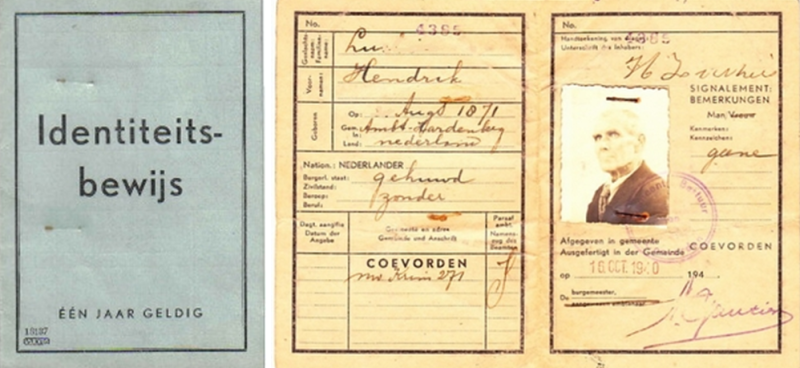 Identiteits-
bewijs
ÉÉN JAAR GELDIG
18187
No.
4385
Geslachts-
naam:
Familien-
name:
Lu
Voor-
namen:
Hendrik
Geboren
Op: Augs 1871
Gem.
In: Ambt-Hardenberg
Land: nederland
Nation.: NEDERLANDER
Burgerl. staat: gehuwd
Zivilstand:
Beroep: zonder
Beruf:
Dagt. aangifte
Datum der
Angabe
Gemeente en adres
Gemeinde und Anschrift
Paraaf
ambt.
Namens-
zug des
Beamten
COEVORDEN
Krim 271
No.
4385
Handtekening van
Unterschrift des Inhabers:
H
SIGNALEMENT:
BEMERKUNGEN
Man/Vrouw
Kenmerken:
Kennzeichen:
geene
Bestuur
Afgegeven in gemeente
Ausgefertigt in der Gemeinde
COEVORDEN
op 16 OCT. 1940 194
De burgemeester,